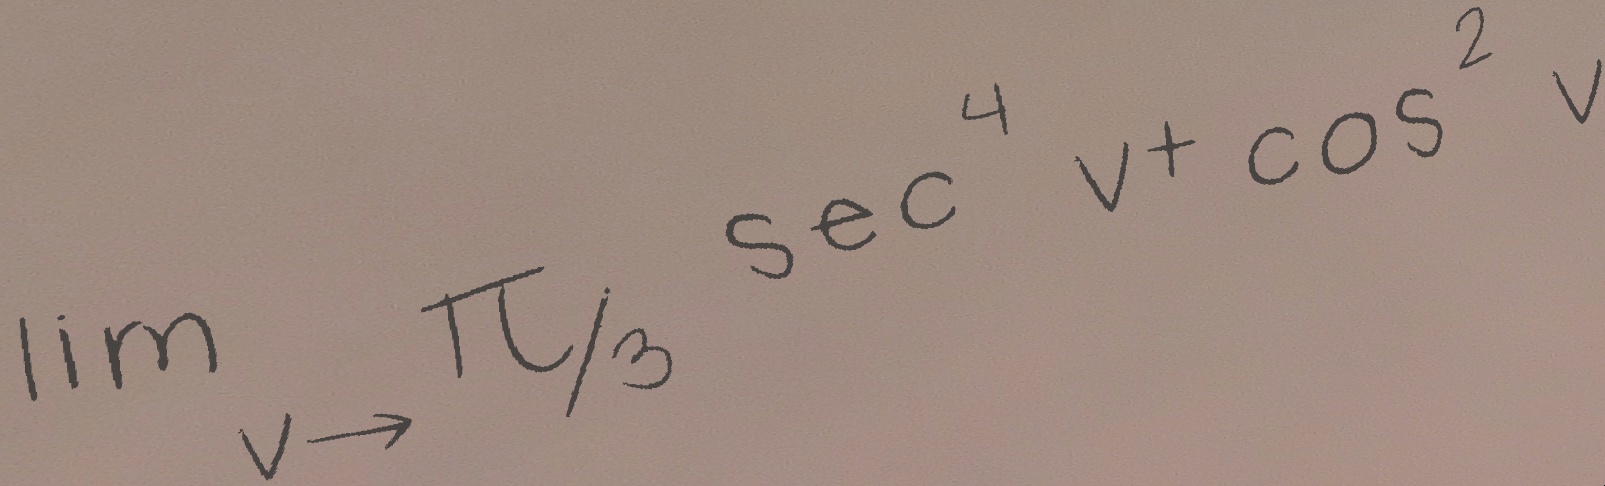 lim v→π/3 sec⁴ v + cos² v